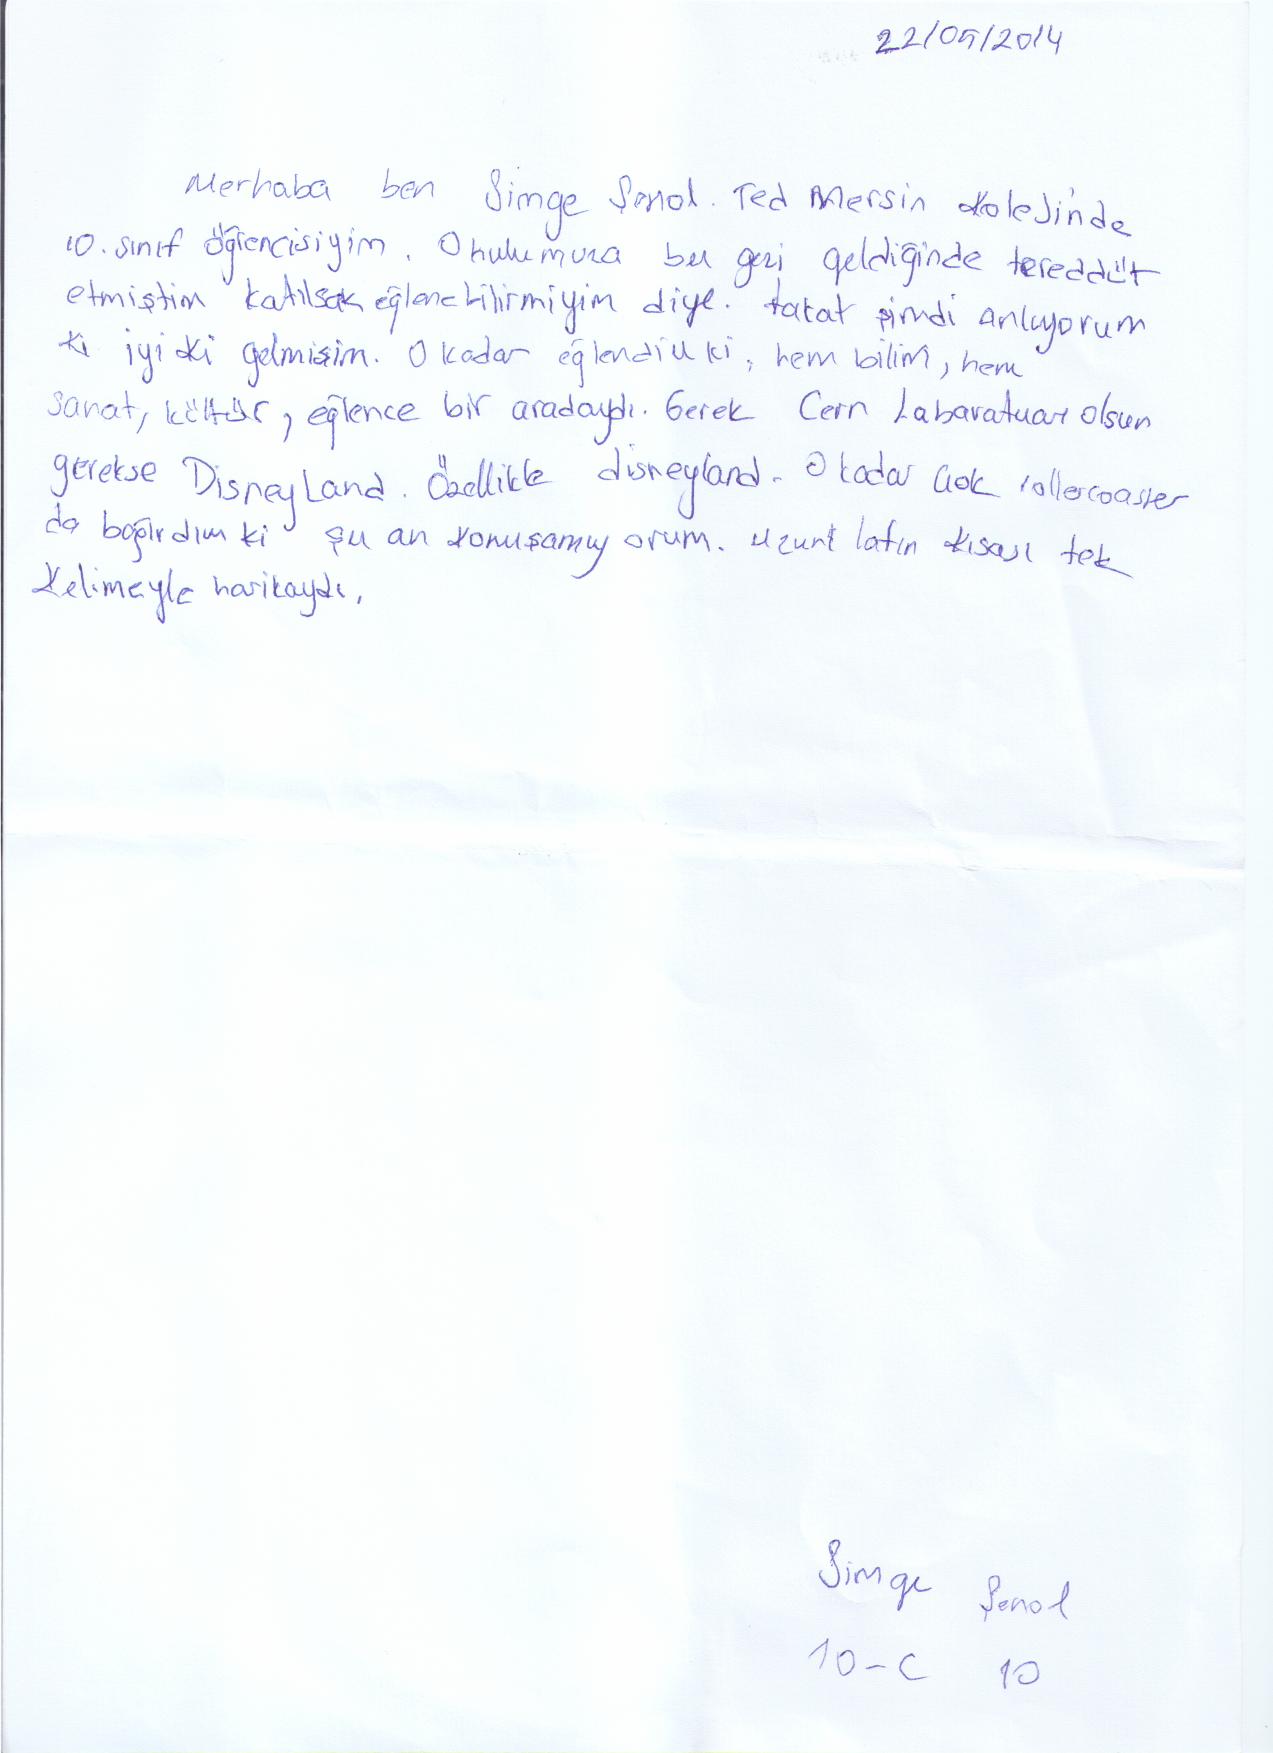 22/05/2014
Merhaba ben Simge Şenol. Ted Mersin Kolejinde
10. sınıf öğrencisiyim. Okulumuza bu gezi geldiğinde tereddüt
etmiştim katılsak eğlenebilirmiyim diye. fakat şimdi anlıyorum
ki iyi ki gelmişim. O kadar eğlendik ki, hem bilim, hem
sanat, kültür, eğlence bir aradaydı. Gerek Cern Labaratuar olsun
gerekse DisneyLand. Özellikle disneyland. O kadar çok rollercoaster
da bağırdım ki şu an konuşamıyorum. uzunt lafın kısası tek
kelimeyle harikaydı.
Simge Şenol
10-C 10